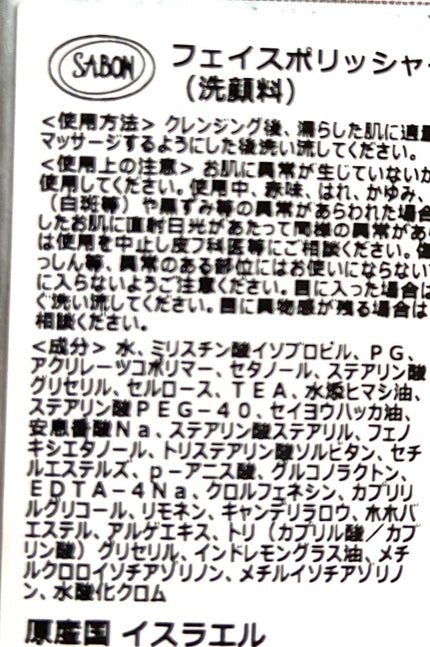 SABON
フェイスポリッシャー
（洗顔料）
＜使用方法＞ クレンジング後、濡らした肌に適量
マッサージするようにした後洗い流してください。
＜使用上の注意＞ お肌に異常が生じていないか
使用してください。使用中、赤味、はれ、かゆみ、
（白斑等）や黒ずみ等の異常があらわれた場合
したお肌に直射日光があたって同様の異常があら
は使用を中止し皮フ科医等にご相談ください。傷
っしん等、異常のある部位にはお使いにならない
に入らないようご注意ください。目に入った場合は
ぐ洗い流してください。目に異物感が残る場合は
相談ください。
＜成分＞ 水、ミリスチン酸イソプロピル、ＰＧ、
アクリレーツコポリマー、セタノール、ステアリン酸
グリセリル、セルロース、ＴＥＡ、水添ヒマシ油、
ステアリン酸ＰＥＧ－４０、セイヨウハッカ油、
安息香酸Ｎａ、ステアリン酸ステアリル、フェノ
キシエタノール、トリステアリン酸ソルビタン、セチ
ルエステルズ、ｐ－アニス酸、グルコノラクトン、
ＥＤＴＡ－４Ｎａ、クロルフェネシン、カプリリ
ルグリコール、リモネン、キャンデリラロウ、ホホバ
エステル、アルゲエキス、トリ（カプリル酸／カプ
リン酸）グリセリル、インドレモングラス油、メチ
ルクロロイソチアゾリノン、メチルイソチアゾリノ
ン、水酸化クロム
原産国 イスラエル